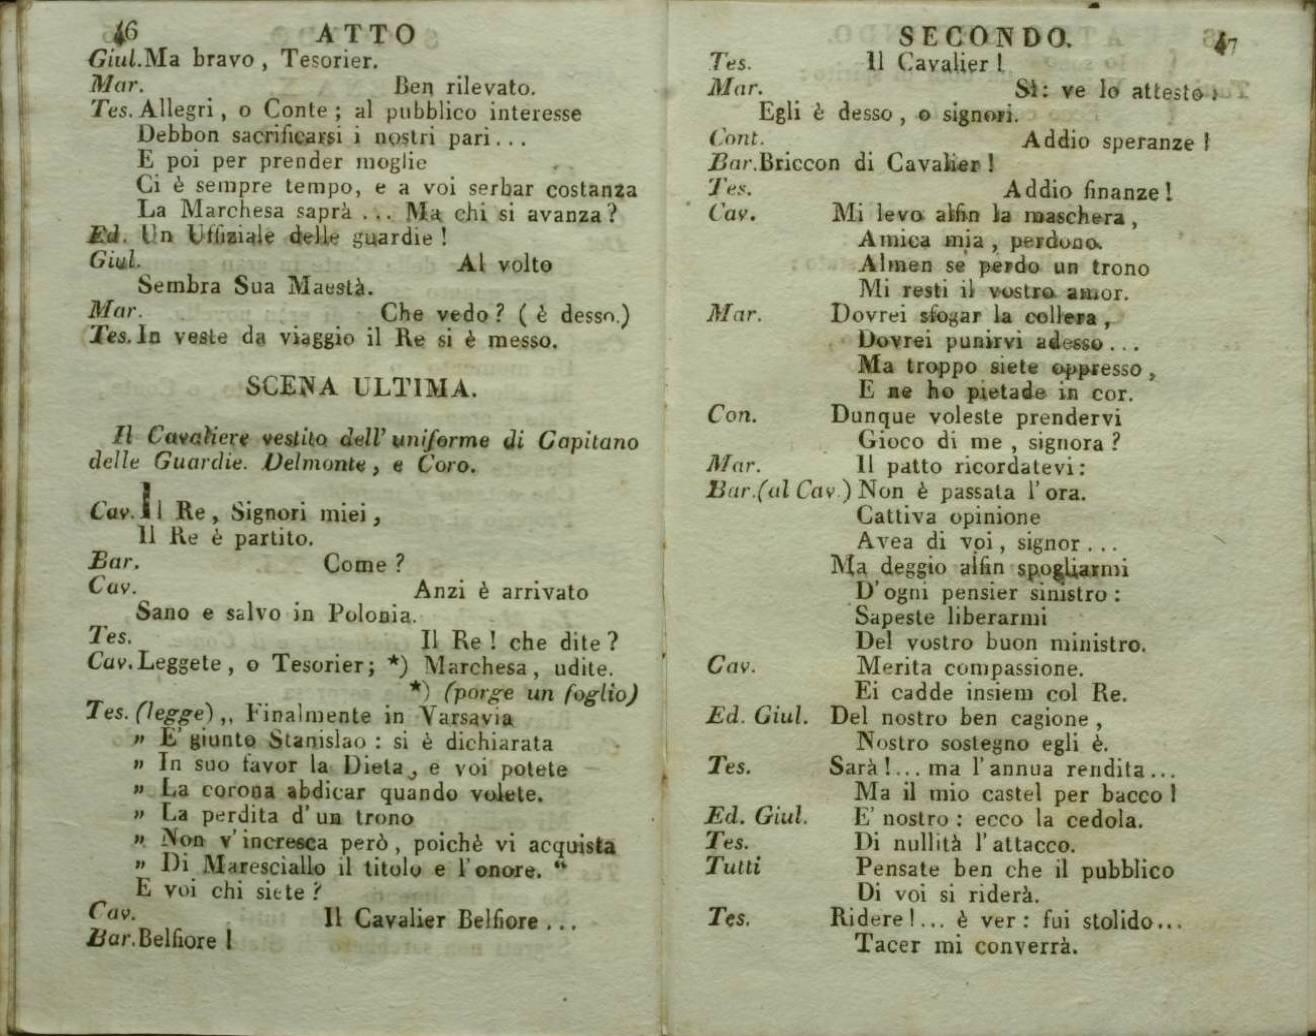 46 ATTO
Giul. Ma bravo, Tesorier.
Mar. Ben rilevato.
Tes. Allegri, o Conte; al pubblico interesse
Debbon sacrificarsi i nostri pari...
E poi per prender moglie
Ci è sempre tempo, e a voi serbar costanza
La Marchesa saprà ... Ma chi si avanza?
Ed. Un Uffiziale delle guardie!
Giul. Al volto
Sembra Sua Maestà.
Mar. Che vedo? (è desso.)
Tes. In veste da viaggio il Re si è messo.
SCENA ULTIMA.
Il Cavaliere vestito dell' uniforme di Capitano
delle Guardie. Delmonte, e Coro.
Cav. Il Re, Signori miei,
Il Re è partito.
Bar. Come?
Cav. Anzi è arrivato
Sano e salvo in Polonia.
Tes. Il Re! che dite?
Cav. Leggete, o Tesorier; *) Marchesa, udite.
*) (porge un foglio)
Tes. (legge) ,, Finalmente in Varsavia
" E' giunto Stanislao: si è dichiarata
" In suo favor la Dieta, e voi potete
" La corona abdicar quando volete.
" La perdita d' un trono
" Non v' incresca però, poichè vi acquista
" Di Maresciallo il titolo e l' onore. "
E voi chi siete?
Cav. Il Cavalier Belfiore...
Bar. Belfiore!
SECONDO. 47
Tes. Il Cavalier!
Mar. Sì: ve lo attesto;
Egli è desso, o signori.
Cont. Addio speranze!
Bar. Briccon di Cavalier!
Tes. Addio finanze!
Cav. Mi levo alfin la maschera,
Amica mia, perdono.
Almen se perdo un trono
Mi resti il vostro amor.
Mar. Dovrei sfogar la collera,
Dovrei punirvi adesso...
Ma troppo siete oppresso,
E ne ho pietade in cor.
Con. Dunque voleste prendervi
Gioco di me, signora?
Mar. Il patto ricordatevi:
Bar. (al Cav.) Non è passata l' ora.
Cattiva opinione
Avea di voi, signor...
Ma deggio alfin spogliarmi
D' ogni pensier sinistro:
Sapeste liberarmi
Del vostro buon ministro.
Cav. Merita compassione.
Ei cadde insiem col Re.
Ed. Giul. Del nostro ben cagione,
Nostro sostegno egli è.
Tes. Sarà!... ma l' annua rendita...
Ma il mio castel per bacco!
Ed. Giul. E' nostro: ecco la cedola.
Tes. Di nullità l' attacco.
Tutti Pensate ben che il pubblico
Di voi si riderà.
Tes. Ridere!... è ver: fui stolido...
Tacer mi converrà.